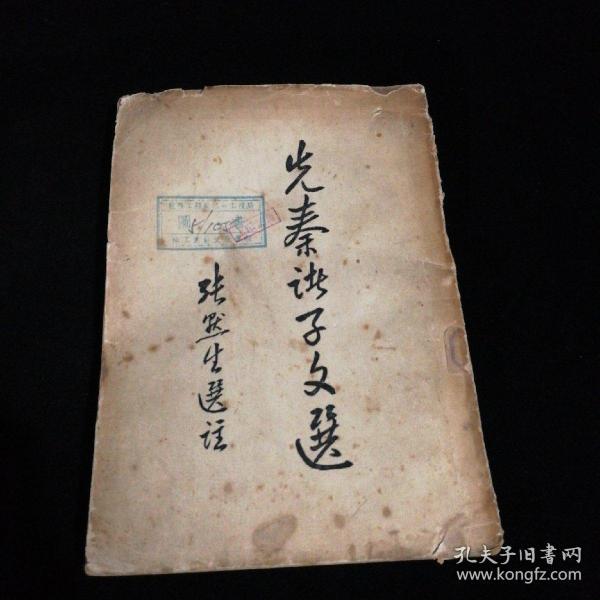 先秦諸子文選
張默生選註
圖 書
5/105
孔夫子旧書网
www.kongfz.com